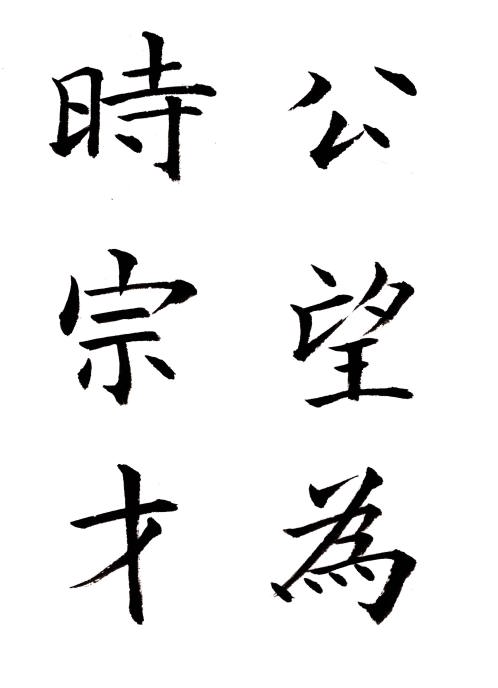 公望為
時宗才